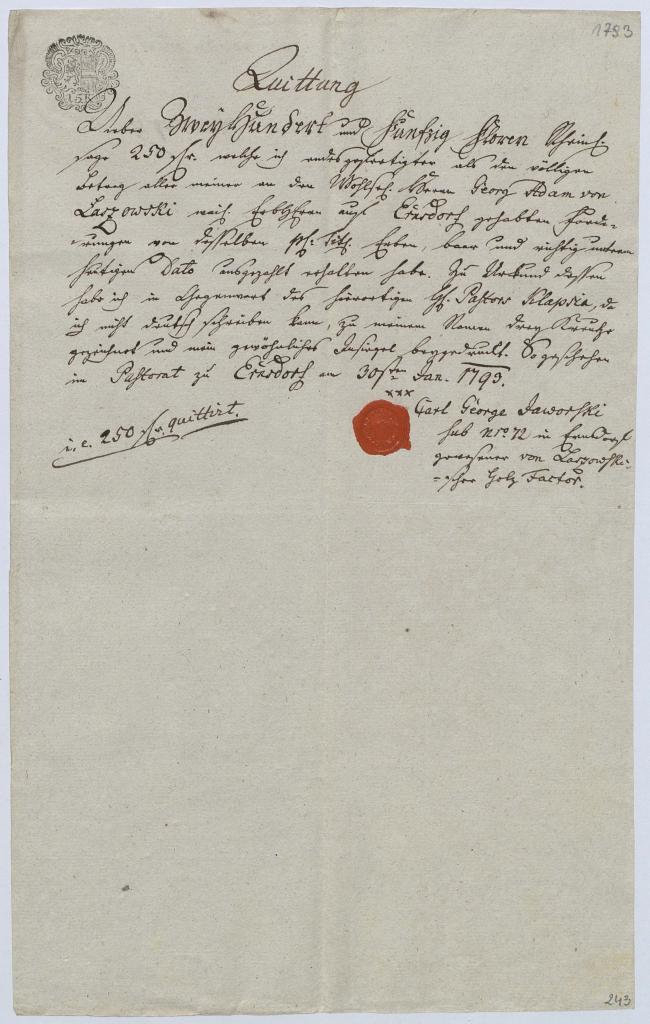 1793
15 K
Quittung
Ueber Zwey Hundert und Funfzig Floren Rheinl.
sage 250 fr. welche ich endesgefertigter als den völligen
Betrag aller meiner an den Wohlseh. Herrn Georg Adam von
Laszowski Erbherrn auf Ernsdorf gehabten Forde-
rungen von desselben Erben, baar und richtig unterm
heutigen Dato ausgezahlt erhalten habe. Zu Urkund dessen
habe ich in Gegenwart des hierortigen H. Pastors Klapsia, da
ich nicht deutsch schreiben kann, zu meinem Namen drey Kreutze
gezeichnet und mein gewöhnliches Insiegel beygedrukt. So geschehen
im Pastorat zu Ernsdorf am 30sten Jan. 1793.
xxx
Carl George Jaworski
sub Nro 72 in Ernsdorf
gewesener von Laszowski-
=scher Holz Factor.
i. e. 250 fr. quittirt.
243